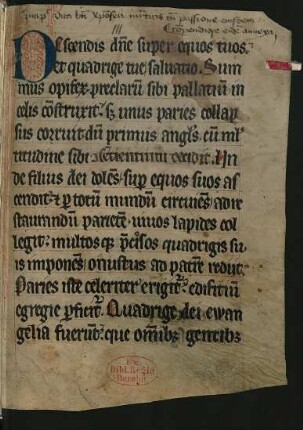 Ascendis dne super equos tuos.
et quadrige tue saluatio. Sum
mus opifex preclarum sibi pallatiu in
celis construxit. sz unus paries collap
sus corruit du primus angls. cu ml
titudine sibi consentientiu cecidit. In
de filius dei dolens. sup equos suos as
cendit. z p totu mundu circuiens. ad re
staurandum parietem. uiuos lapides col
legit. multosqz pciosos quadrigis su
is imponens. onustus ad patre rediit.
Paries iste celeriter erigitur. edifitiu
egregie pficitur. Quadrige dei ewan
gelia fuerunt. que omibz gentibz
Ex
Bibl. Regia